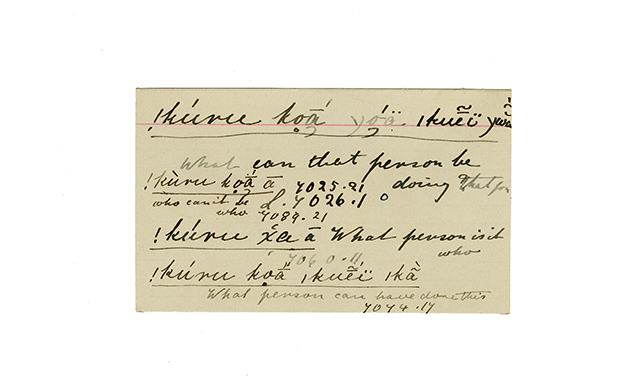 !kúrru ḳọá́ yóä. ıkuẽ́ï
What can that person be
!kùrru ḳọá̃ ā 7025.21 doing
who can it be 7026.1
who 7089.21
!kúrru x̌a ā What person is it
who
7060.11
!kúrru ḳóã̈ ıkuẽ́ï ıkȁ
What person can have done this
7074.17